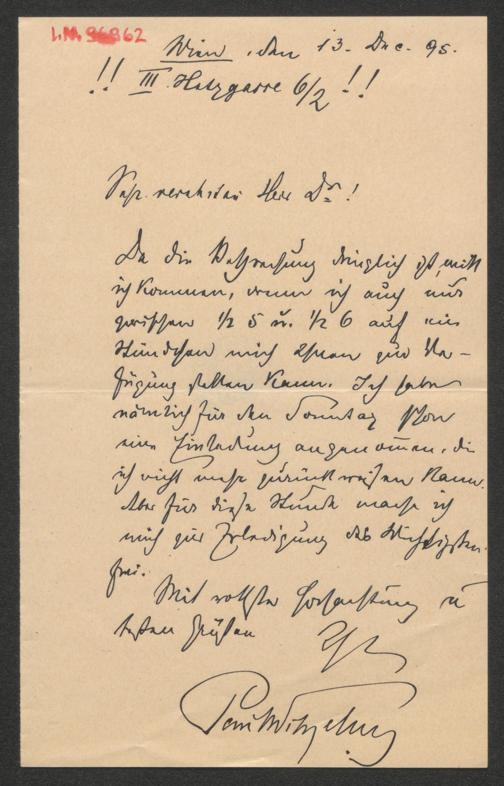 I.N. 96862
Wien, den 13. Dec. 95.
!! III. Hetzgasse 6/2 !!
Sehr verehrter Herr Dr!
Da die Besprechung dringlich ist, will
ich kommen, wenn ich auch nur
zwischen 1/2 5 u. 1/2 6 auf ein
Stündchen mich Ihnen zur Ver-
fügung stellen kann. Ich habe
nämlich für den Sonntag schon
eine Einladung angenommen, die
ich nicht mehr zurückweisen kann.
Aber für diese Stunde mache ich
mich zur Erledigung des Wichtigsten
frei.
Mit vollster Hochachtung u
besten Grüßen
Ihr
Paul